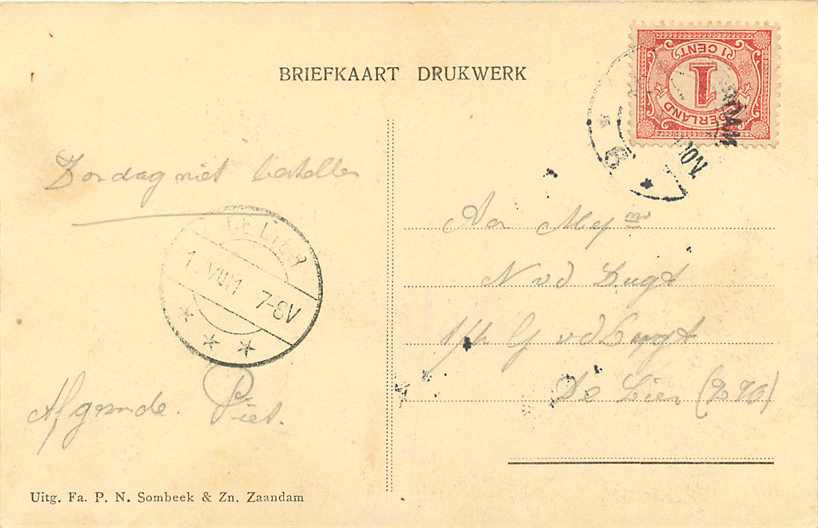 BRIEFKAART DRUKWERK
1 CENT
NEDERLAND
6
NOV.
Zondag niet bestellen
DE LIER
1 VIII 1 7-8V
Afz. Piet.
Aan Mej
N vd Lugt
p/a G vd Lugt
De Lier (Z.H.)
Uitg. Fa. P. N. Sombeek & Zn. Zaandam